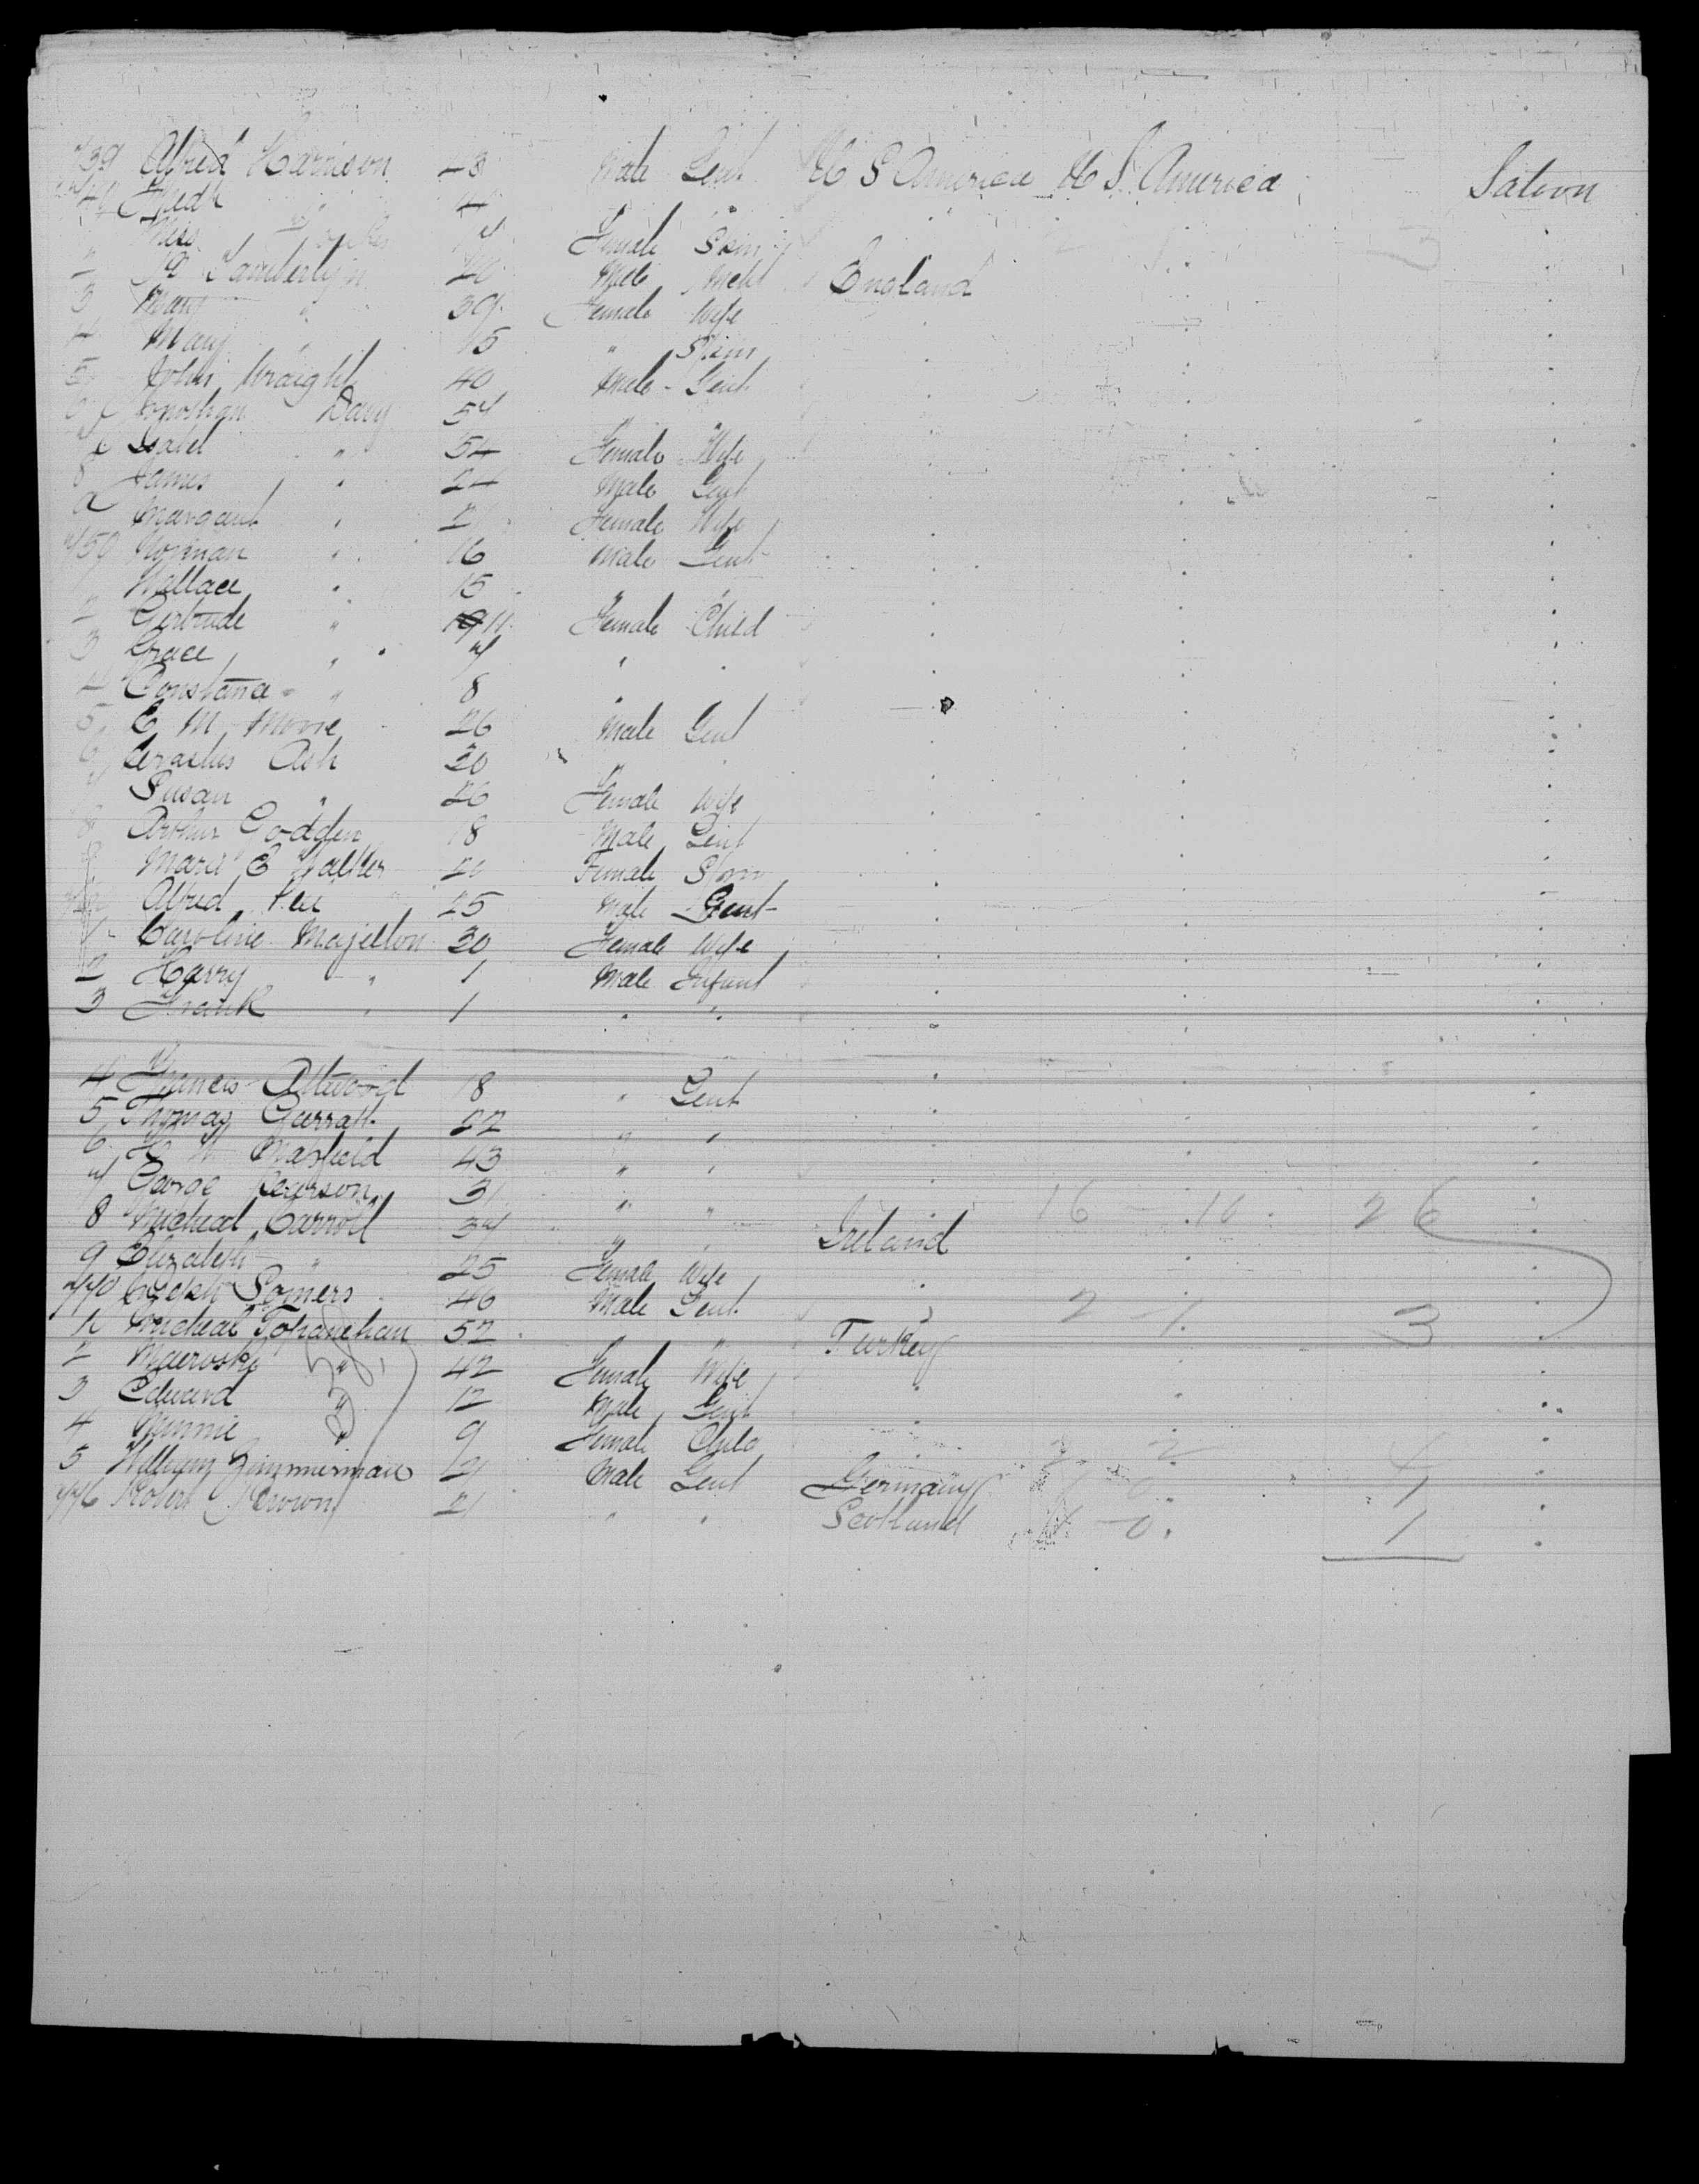 739 Alfred Harrison 28 Male Gent U S America U S America Saloon
Fredk " "
Miss Female Spin 3
2 Tamberlyn 40 Male Mcht England
3 Mary " 39 Female Wife
4 Mary " 15 " Spin
5 John Wraight 40 Male Gent
6 Davy 57
7 " 54 Female Wife
8 James " 24 Male Gent
9 Margaret " 21 Female Wife
750 Norman " 16 Male Gent
1 Wallace " 15 "
2 Gertrude " 11 Female Child
3 Grace " 7 " "
4 Constance " 8 "
5 E M Moore 26 Male Gent
6 Erastus Ash 30 "
7 Susan " 26 Female Wife
8 Arthur Godden 18 Male Gent
E Walker Female Spin
Alfred 25 Male Gent
1 Caroline Majellon 30 Female Wife
2 Harry " 1 Male Infant
3 Frank " 1 " "
4 Francis Attwood 18 " Gent
5 Thomas Garratt 22 " "
6 H W Masfield 43 " "
7 George Pearson 31 " " 16 16 26
8 Micheal Carroll 37 " " Ireland
9 Elizabeth " 25 Female Wife
770 Joseph Somers 46 Male Gent 2 1 3
1 Micheal Tophanehan 52 " " Turkey
2 " 42 Female Wife
3 Edward " 12 Male Gent
4 Minnie " 9 Female Child 2 2 4
5 William Zimmerman 21 Male Gent Germany 1 0 1
776 Robert Brown 21 " " Scotland 1 0 1